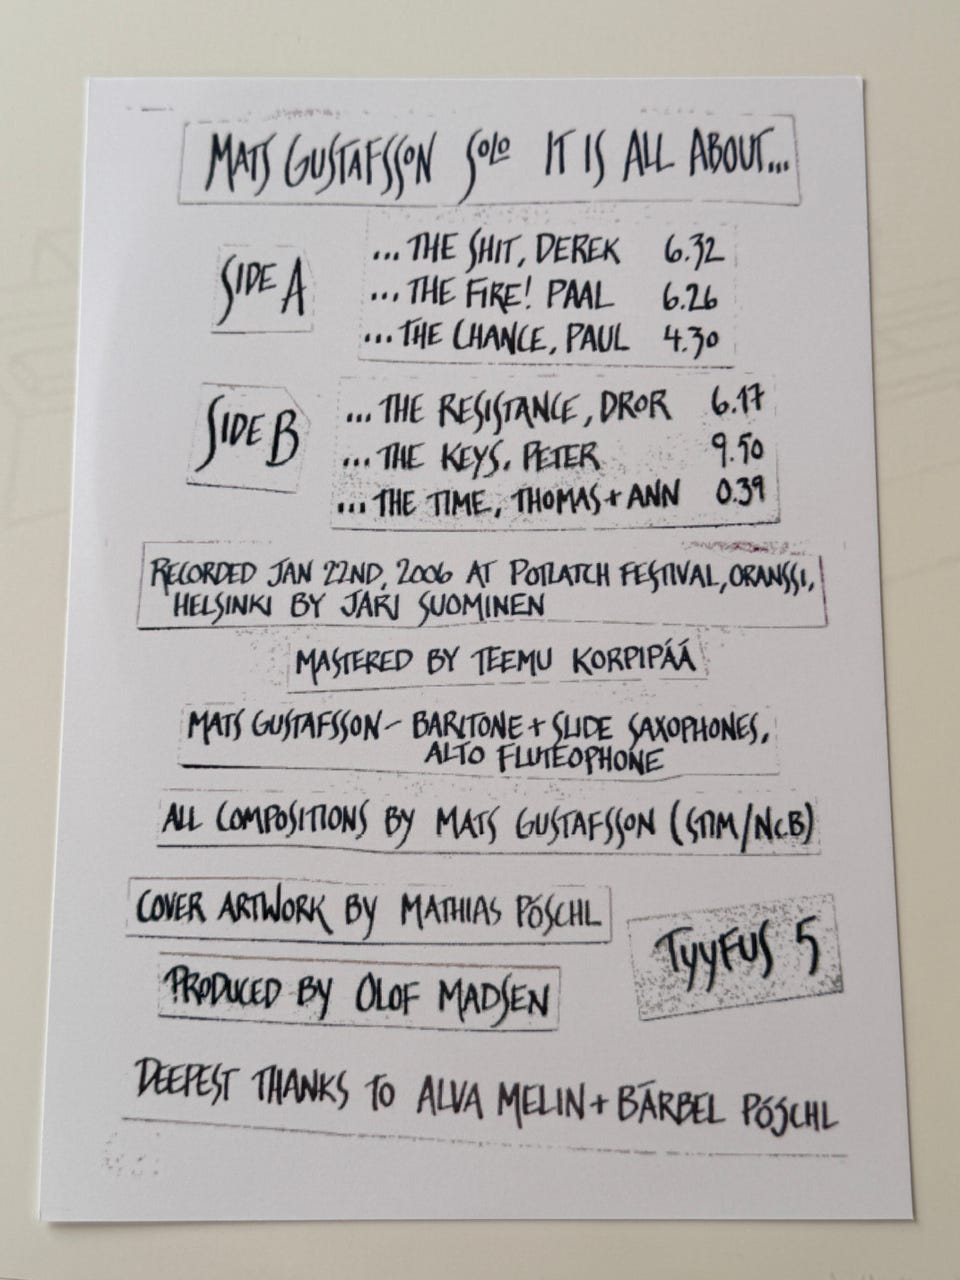 MATS GUSTAFSSON SOLO IT IS ALL ABOUT...
SIDE A
... THE SHIT, DEREK 6.32
... THE FIRE! PAAL 6.26
... THE CHANCE, PAUL 4.30
SIDE B
... THE RESISTANCE, DROR 6.17
... THE KEYS, PETER 9.50
... THE TIME, THOMAS + ANN 0.39
RECORDED JAN 22ND, 2006 AT POTLATCH FESTIVAL, ORANSSI,
HELSINKI BY JARI SUOMINEN
MASTERED BY TEEMU KORPIPÄÄ
MATS GUSTAFSSON - BARITONE + SLIDE SAXOPHONES,
ALTO FLUTEOPHONE
ALL COMPOSITIONS BY MATS GUSTAFSSON (STIM/NCB)
COVER ARTWORK BY MATHIAS PÖSCHL
TYYFUS 5
PRODUCED BY OLOF MADSEN
DEEPEST THANKS TO ALVA MELIN + BÄRBEL PÖSCHL